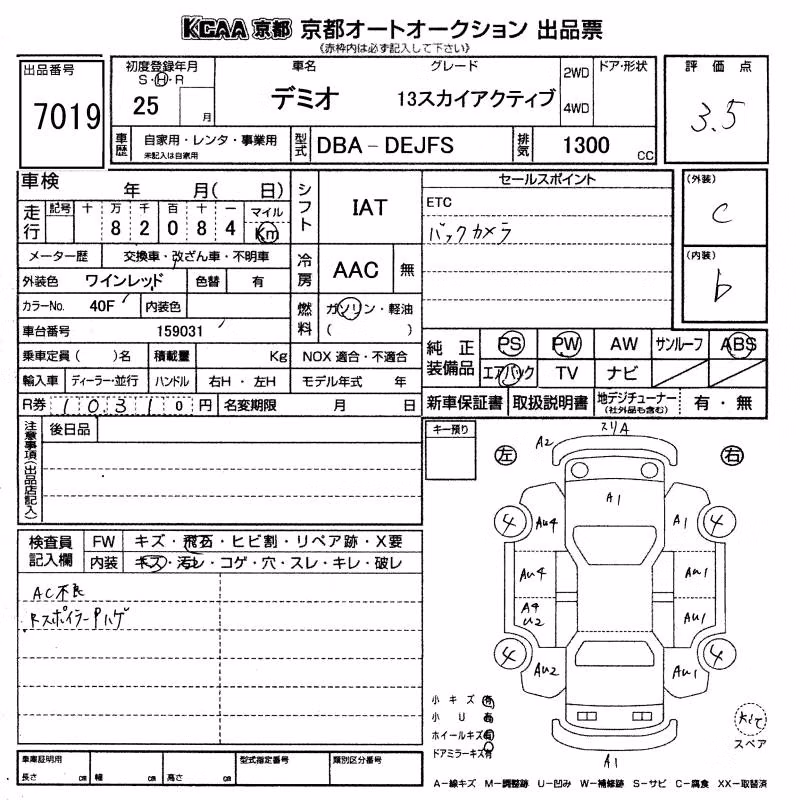 KCAA 京都 京都オートオークション 出品票
《赤枠内は必ず記入して下さい》
出品番号 7019
初度登録年月 S・H・R 25 月
車名 デミオ
グレード 13スカイアクティブ
2WD 4WD
ドア・形状
評価点 3.5
車歴 自家用・レンタ・事業用 未記入は自家用
型式 DBA-DEJFS
排気 1300 cc
車検 年 月( 日)
走行 記号 十 万 千 百 十 一 マイル
8 2 0 8 4 Km
シフト IAT
セールスポイント
ETC
バックカメラ
(外装) C
(内装) b
メーター歴 交換車・改ざん車・不明車
冷房 AAC 無
外装色 ワインレッド 色替 有
カラーNo. 40F 内装色
燃料 ガソリン・軽油 ( )
車台番号 159031
乗車定員 ( )名 積載量 Kg NOX 適合・不適合
輸入車 ディーラー・並行 ハンドル 右H・左H モデル年式 年
R券 10310 円 名変期限 月 日
純正装備品 PS PW AW サンルーフ ABS
エアバック TV ナビ
新車保証書 取扱説明書 地デジチューナー (社外品も含む) 有・無
注意事項(出品店記入) 後日品
キー預り
左 右
スリA
A2
A1
4 Au4 A1 4
Au4 Au1
A4 U2 Au1
4 Au2 Au1 4
A1
検査員記入欄 FW キズ・飛石・ヒビ割・リペア跡・X要
内装 キズ・汚レ・コゲ・穴・スレ・キレ・破レ
AC不良
RスポイラーPハゲ
小キズ 有
小U 有
ホイールキズ 有
ドアミラーキズ 有
スペア
車庫証明用 長さ cm 幅 cm 高さ cm
型式指定番号 類別区分番号
A-線キズ M-調整跡 U-凹み W-補修跡 S-サビ C-腐食 XX-取替済